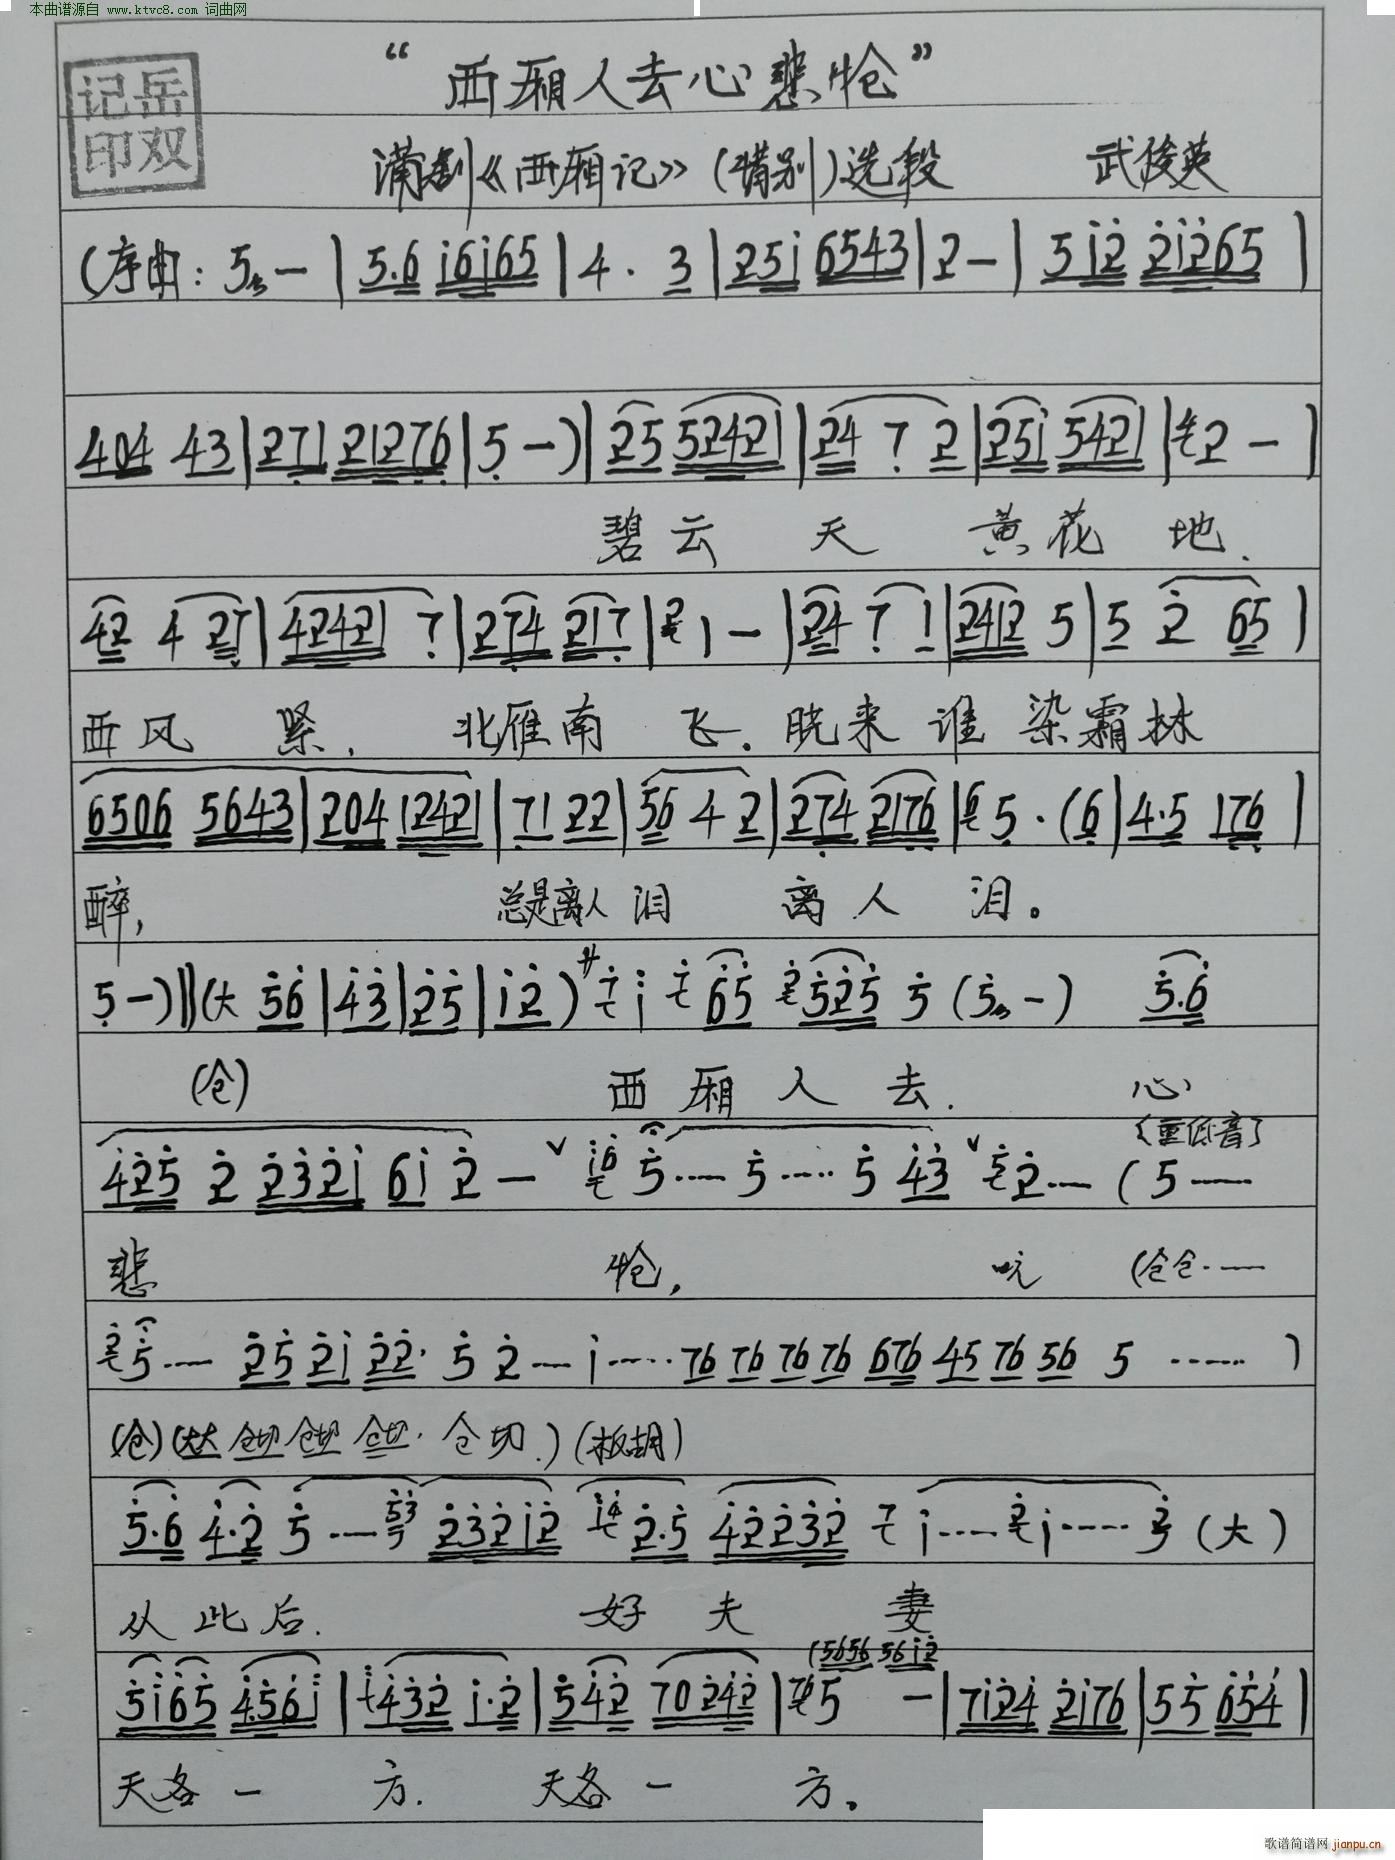 本曲谱源自 www.ktvc8.com 词曲网
记岳
印双
“西厢人去心悲怆”
蒲剧《西厢记》(惜别)选段 武俊英
(序曲: 5 — | 5.6 i6i65 | 4 . 3 | 25i 6543 | 2 — | 5i2 2i265 |
404 43 | 271 21276 | 5 —) | 25 52421 | 24 7 2 | 251 5421 | 2 — |
碧云 天 黄花 地.
42 4 27 | 42421 7 | 274 217 | 1 — | 24 7 1 | 2412 5 | 5 2 65 |
西风 紧, 北雁南 飞. 晓来 谁 染霜林
6506 5643 | 204 12421 | 71 22 | 56 4 2 | 274 2176 | 5 . (6 | 4.5 176 |
醉, 总是离人 泪 离 人 泪。
5 —)‖(大 56 | 43 | 25 | i2 ) サ i 65 525 5 (5 —) 5.6
(仓) 西 厢 人 去. 心
(重低音)
425 2 232i 6i 2 — ∨ 5…… 5…… 5 43 ∨ 2…… ( 5……
悲 怆, 吭 (仓仓……
5…… 25 2i 22. 5 2…… i…… 76 76 76 76 676 45 76 56 5 …… )
(仓)(大大 仓切 仓切 仓切. 仓 切.)(板胡)
5.6 4.2 5…… 232i2 2.5 42232 i…… i…… (大)
从 此 后. 好 夫 妻
(5656 56i2
5i65 456i | 432 i.2 | 542 70242 | 5 — | 7i24 2i76 | 55 654 |
天各 一 方. 天各 一 方。
歌谱简谱网 jianpu.cn